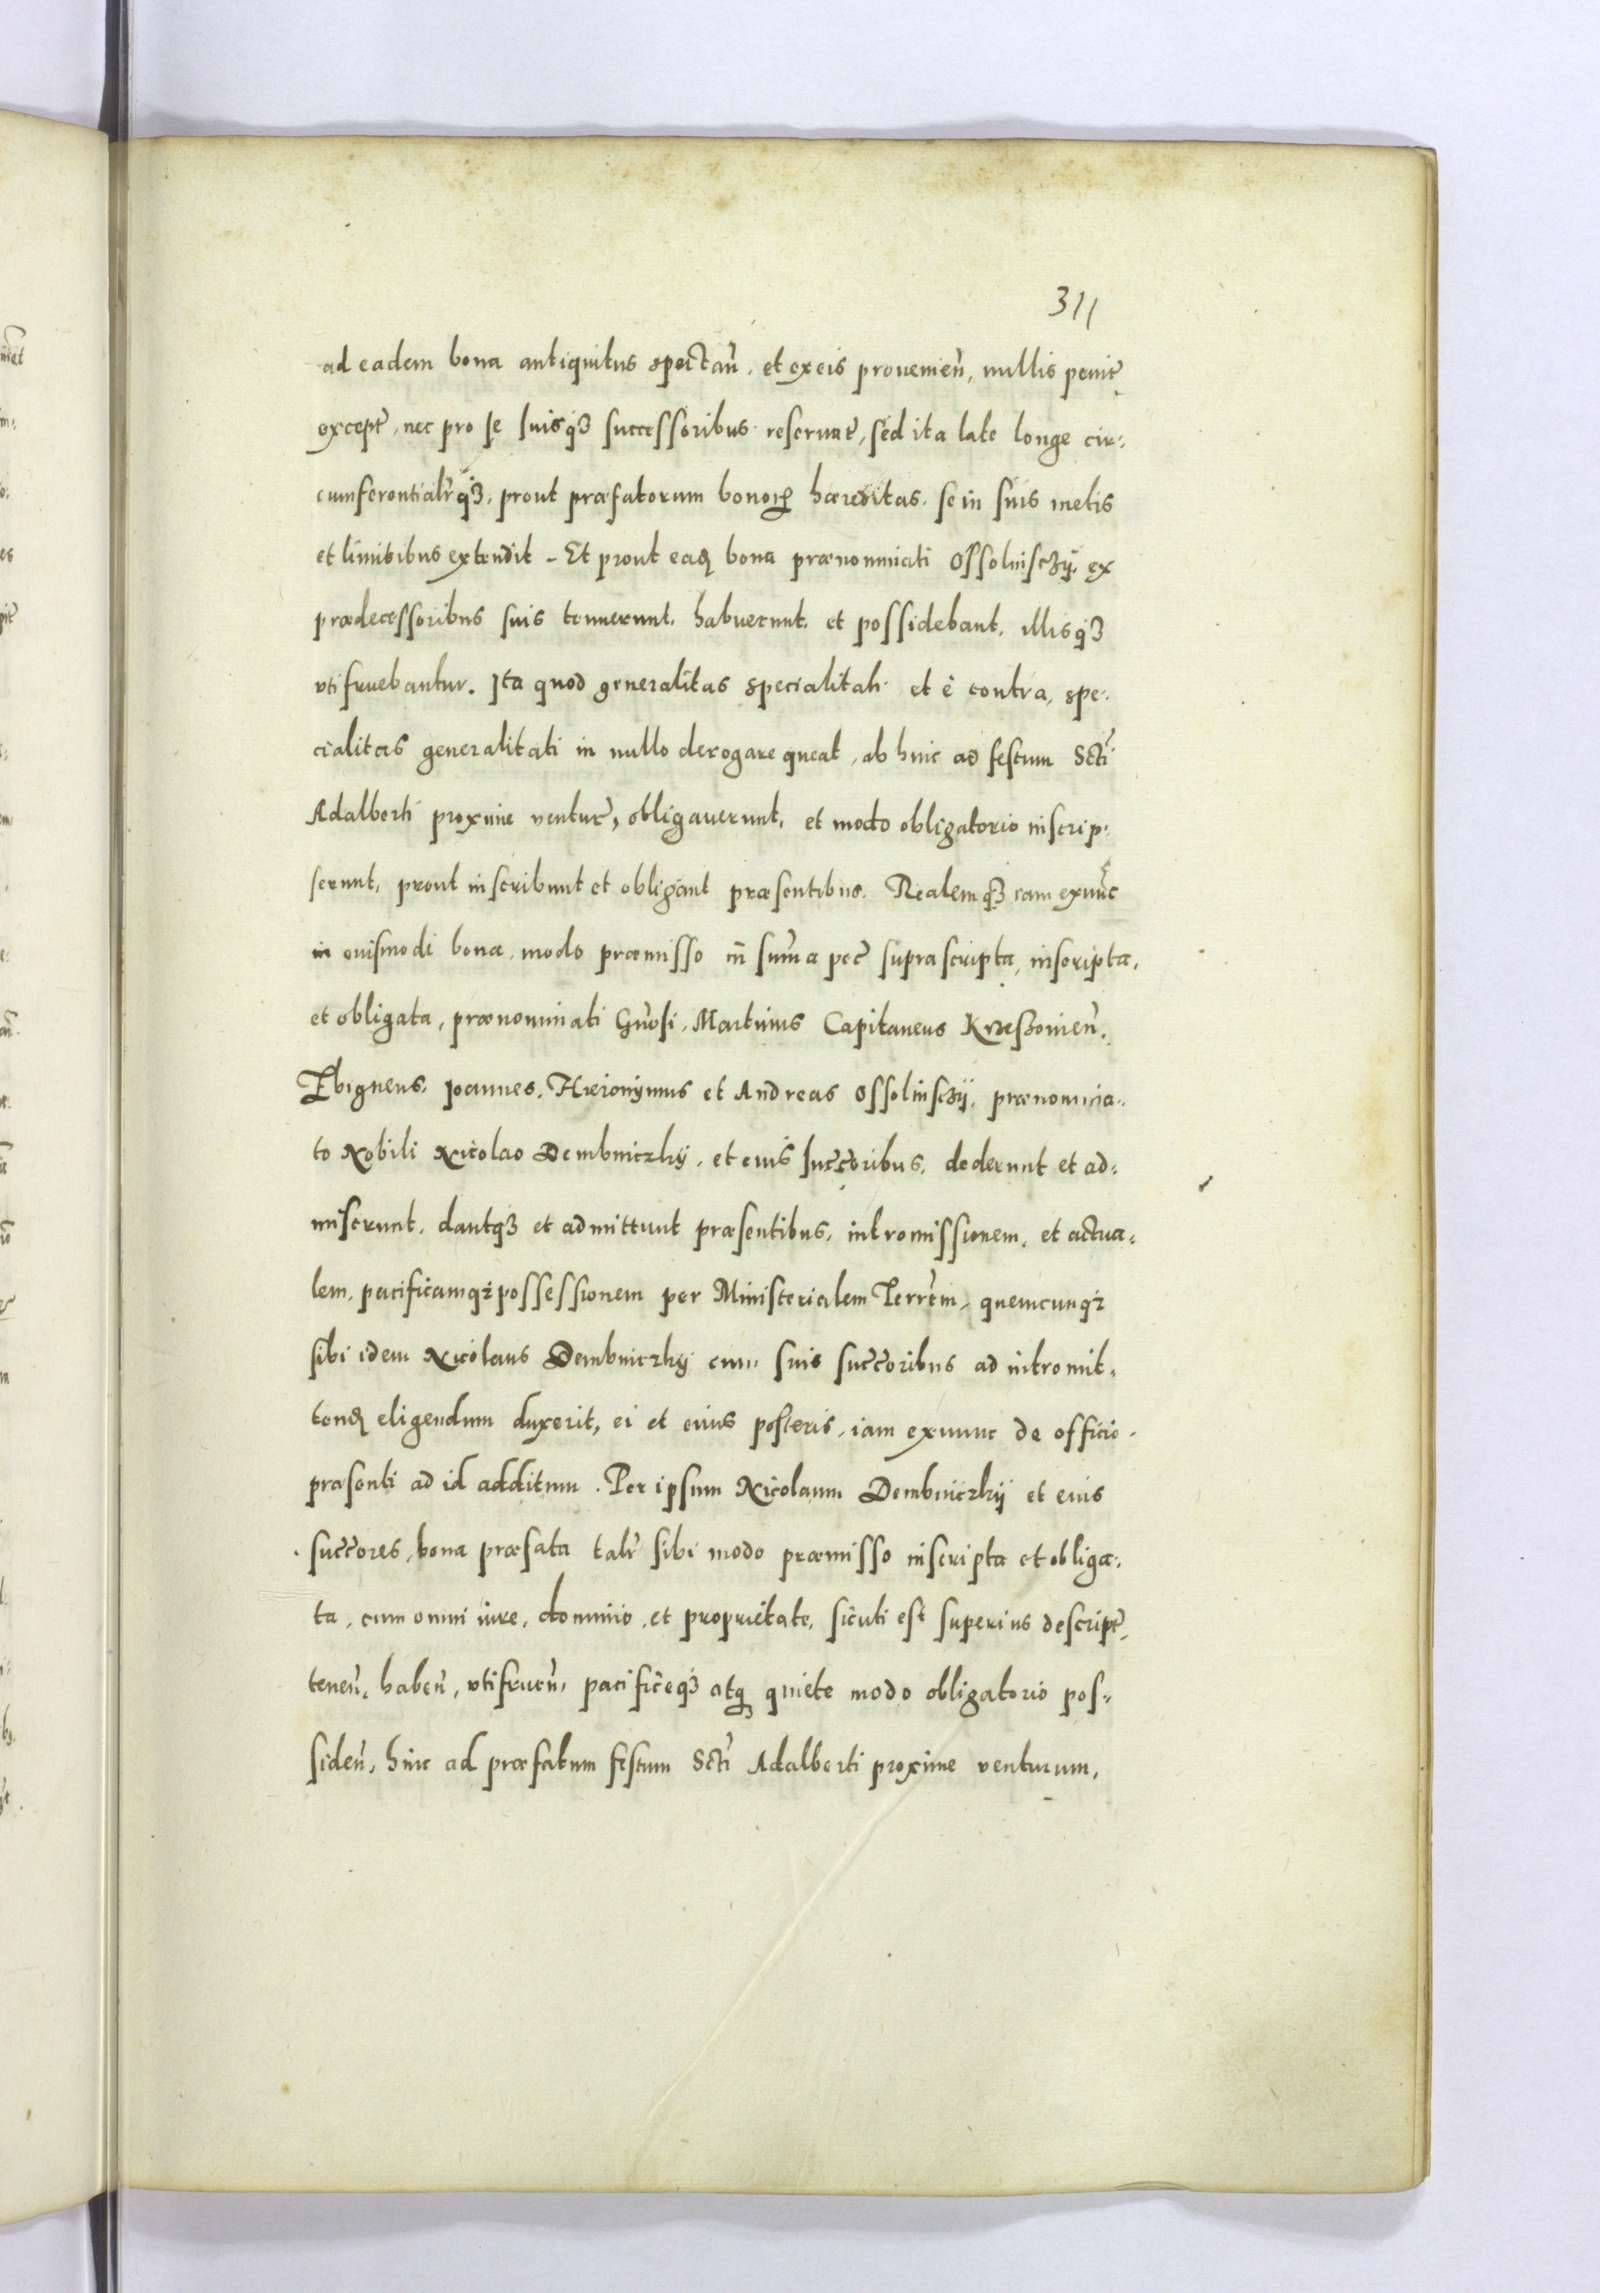 311
ad eadem bona antiquitus spectañ. et ex eis prouenieñ, nullis penitꝰ
except̃, nec pro se suisqȝ successoribus reseruat̃, sed ita late longe cir:
cumferentialr̃qȝ, prout præfatorum bonoꝝ hæreditas. se in suis metis
et limitibus extendit – Et prout eaꝗ bona prænominati Ossolinsczÿ. ex
prædecessoribus suis tenuerunt. habuerunt. et possidebant. illisqȝ
vtifruebantur. Ita quod generalitas specialitati et è contra, spe:
cialitas generalitati in nullo derogare queat, ab hinc ad festum Scti
Adalberti proxime ventur̃, obligauerunt, et modo obligatorio inscrip:
serunt, prout inscribunt et obligant præsentibus. Realemqȝ iam exnũc
in euismodi bona, modo præmisso in sum̃a pec̃ suprascripta, inscripta,
et obligata, prænominati Gñosi, Martinus Capitaneus Krzeszouieñ.
Zbigneus. Joannes. Hieronymus et Andreas Ossolinsczÿ. prænomina:
to Nobili Nicolao Dembniczkÿ, et euis succ̃oribus. dederunt et ad:
miserunt. dantqȝ et admittunt præsentibus, intromissionem. et actua:
lem, pacificamqȝ possessionem per Ministerialem Terrẽm, quemcunqȝ
sibi idem Nicolaus Dembniczkÿ cum suis succ̃oribus ad intromit:
tenꝗ eligendum duxerit, ei et eius posteris, iam exnunc de officio
præsenti ad id additum. Per ipsum Nicolaum Dembniczkÿ et euis
succ̃ores, bona præfata talr̃ sibi modo præmisso inscripta et obliga:
ta, cum omni iure, dominio, et proprietate, sicuti est superius descript̃,
teneñ, habeñ, vtifrueñ, pacificeqȝ atqȝ quiete modo obligatorio pos:
sideñ, hinc ad præfatum festum Scti Adalberti proxime venturum,